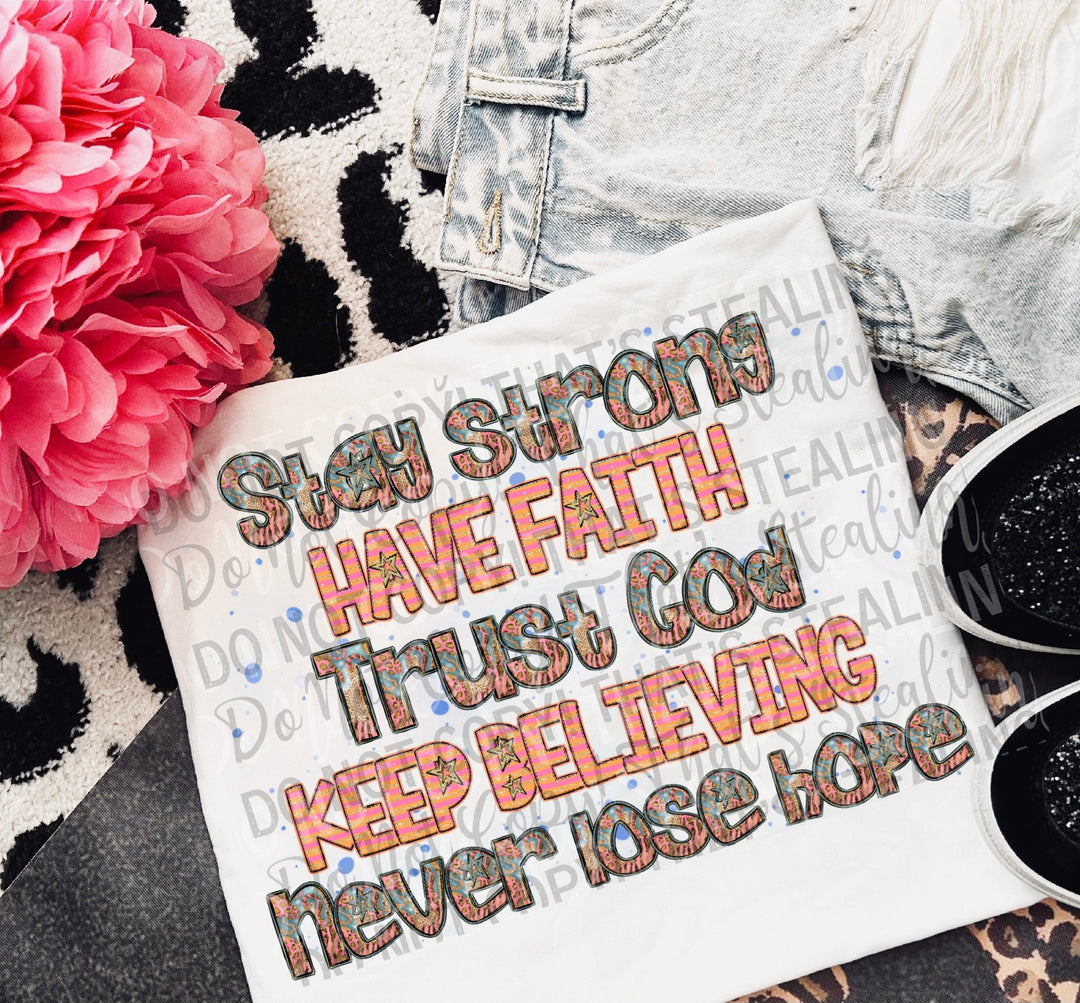 Stay strong
HAVE FAITH
Trust God
KEEP BELIEVING
never lose hope
DO NOT COPY! THAT'S STEALINN
Do Not Copy That's Stealinn
DO NOT COPY! THAT'S STEALINN
Do Not Copy That's Stealinn
DO NOT COPY! THAT'S STEALINN
Do Not Copy That's Stealinn